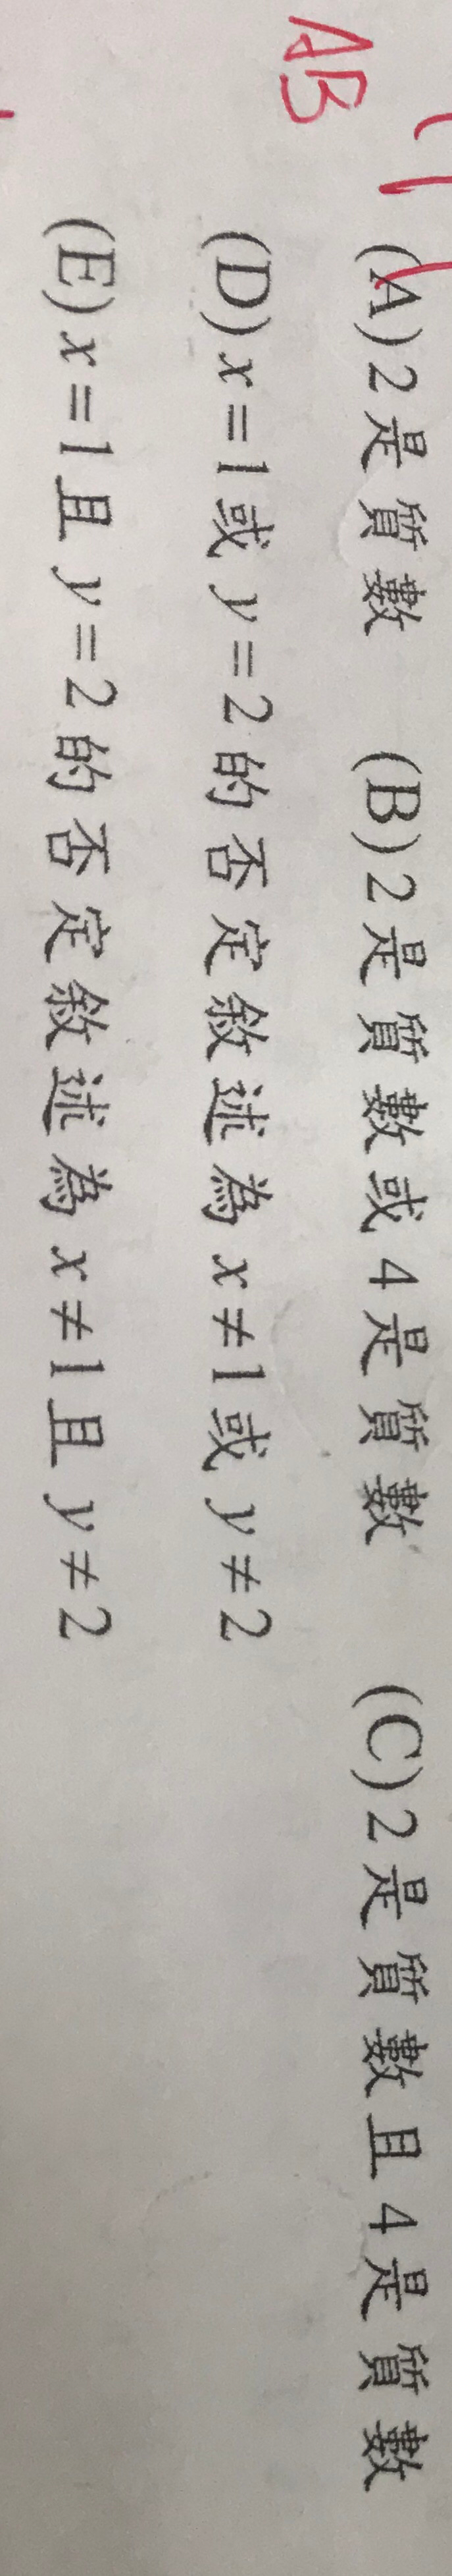 (A)2是質數 (B)2是質數或4是質數 (C)2是質數且4是質數
AB
(D)x=1或y=2的否定敘述為x≠1或y≠2
(E)x=1且y=2的否定敘述為x≠1且y≠2